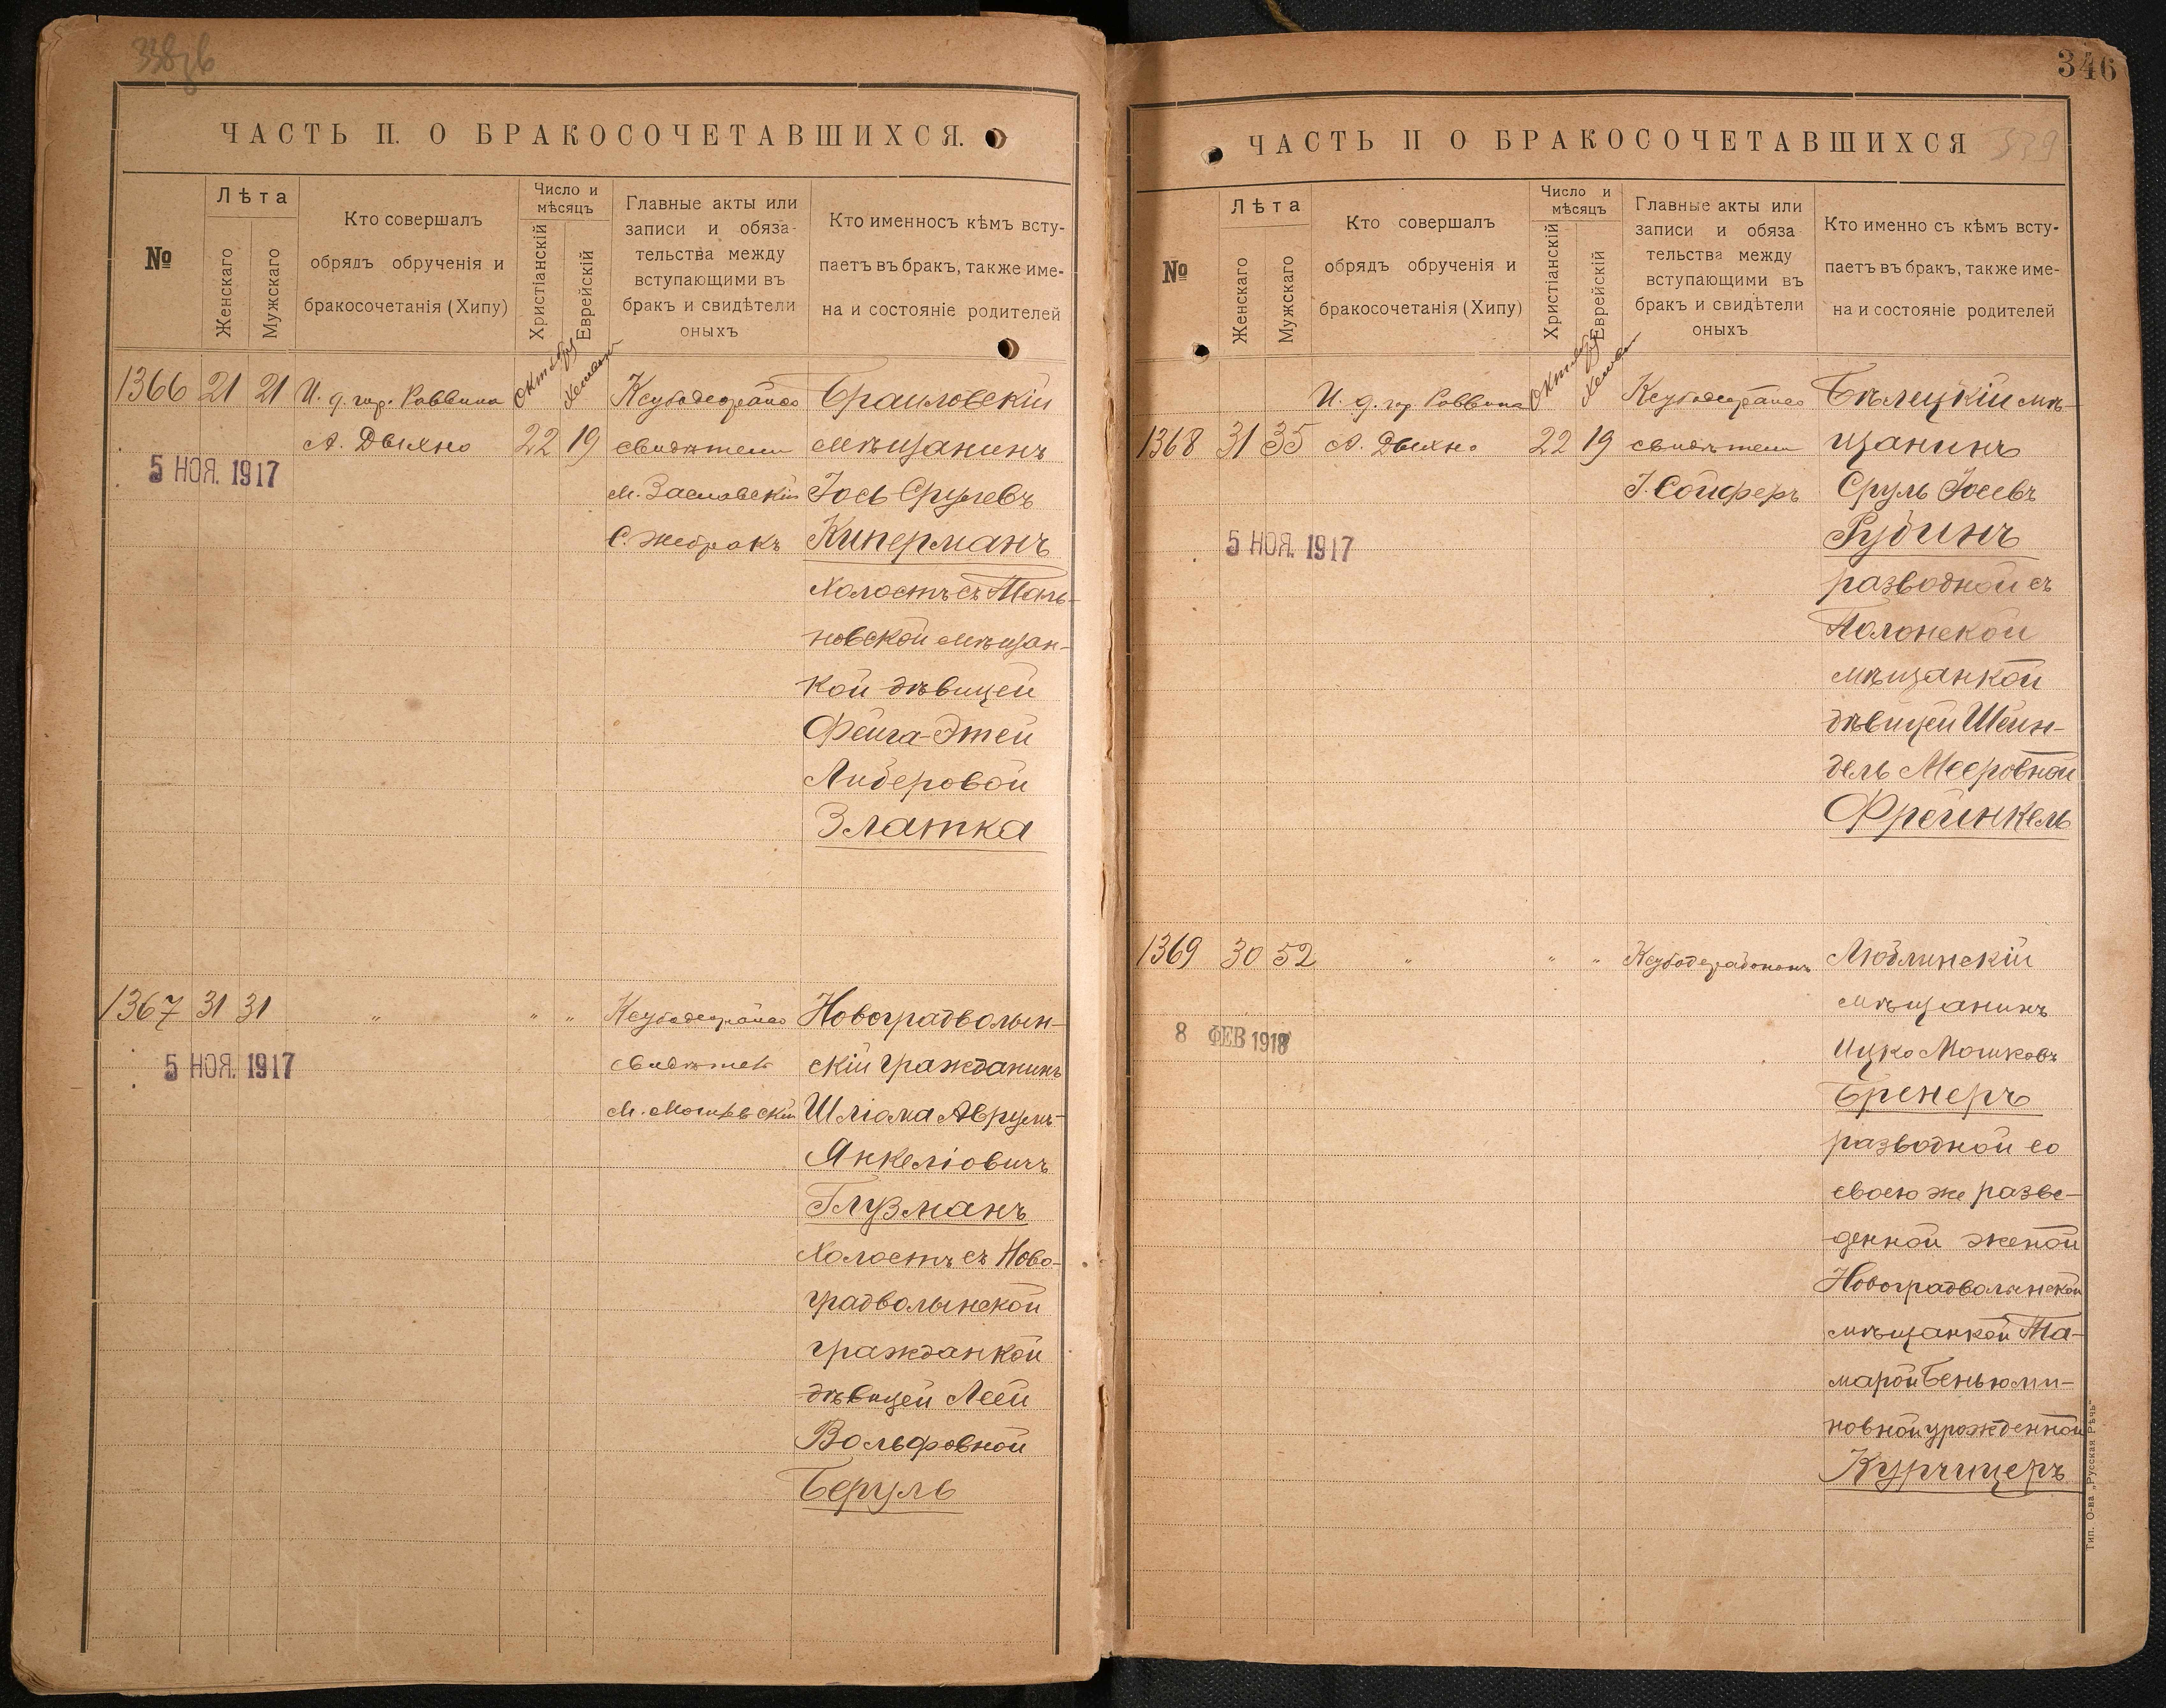 338 зв
ЧАСТЬ II. О БРАКОСОЧЕТАВШИХСЯ.
№
Лѣта
Женскаго
Мужскаго
Кто совершалъ
обрядъ обрученія и
бракосочетанія (Хипу)
Число и
мѣсяцъ
Христіанскій
Еврейскій
Главные акты или
записи и обяза-
тельства между
вступающими въ
бракъ и свидѣтели
оныхъ
Кто именносъ кѣмъ всту-
паетъ въ бракъ, также име-
на и состояніе родителей
1366 21 21 И. д. гор. Раввина
А. Дыхно
Октября
22 19
5 НОЯ. 1917
свидѣтели
М. Заславскій
С. Жебракъ
Браиловскій
мѣщанинъ
Іось Срулевъ
Киперманъ
холостъ съ Таль-
новской мѣщан-
кой дѣвицей
Фейга-Этей
Лидеровой
Златка
1367 31 31 " " "
5 НОЯ. 1917
Новоградволын-
скій гражданинъ
Шліома Аврумъ-
Янкеліовичъ
Глузманъ
холостъ съ Ново-
градволынской
гражданкой
дѣвицей Леей
Вольфовной
Беруль
346
339
ЧАСТЬ II О БРАКОСОЧЕТАВШИХСЯ
№
Лѣта
Женскаго
Мужскаго
Кто совершалъ
обрядъ обрученія и
бракосочетанія (Хипу)
Число и
мѣсяцъ
Христіанскій
Еврейскій
Главные акты или
записи и обяза
тельства между
вступающими въ
бракъ и свидѣтели
оныхъ
Кто именно съ кѣмъ всту-
паетъ въ бракъ, также име-
на и состояніе родителей
И. д. гор Раввина
1368 31 35 А. Дыхно
Октября
22 19
5 НОЯ. 1917
свидѣтели
І. Сойферъ
Бѣлецкій мѣ-
щанинъ
Сруль Іосевъ
Рубинъ
разводной съ
Полонской
мѣщанкой
дѣвицей Шейн-
дель Мееровной
Фрейнкель
1369 30 52 " " "
8 ФЕВ 1918
Люблинскій
мѣщанинъ
Ицко Мошковъ
Бренеръ
разводной со
своею же разве-
денной женой
Новоградволынской
мѣщанкой Та-
марой Беньюми-
новной урожденной
Курчицеръ
Тип. О-ва „Русская Рѣчь"